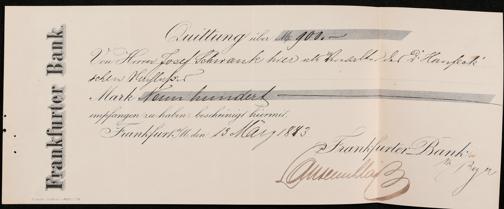 Frankfurter Bank.
Quittung über M. 900.—
Von Herrn Josef Schrank hier als Verwalter des Dr.
schen
Mark Neunhundert
empfangen zu haben bescheinigt hiermit.
Frankfurt a/M. den 13 März 1883
Frankfurter Bank